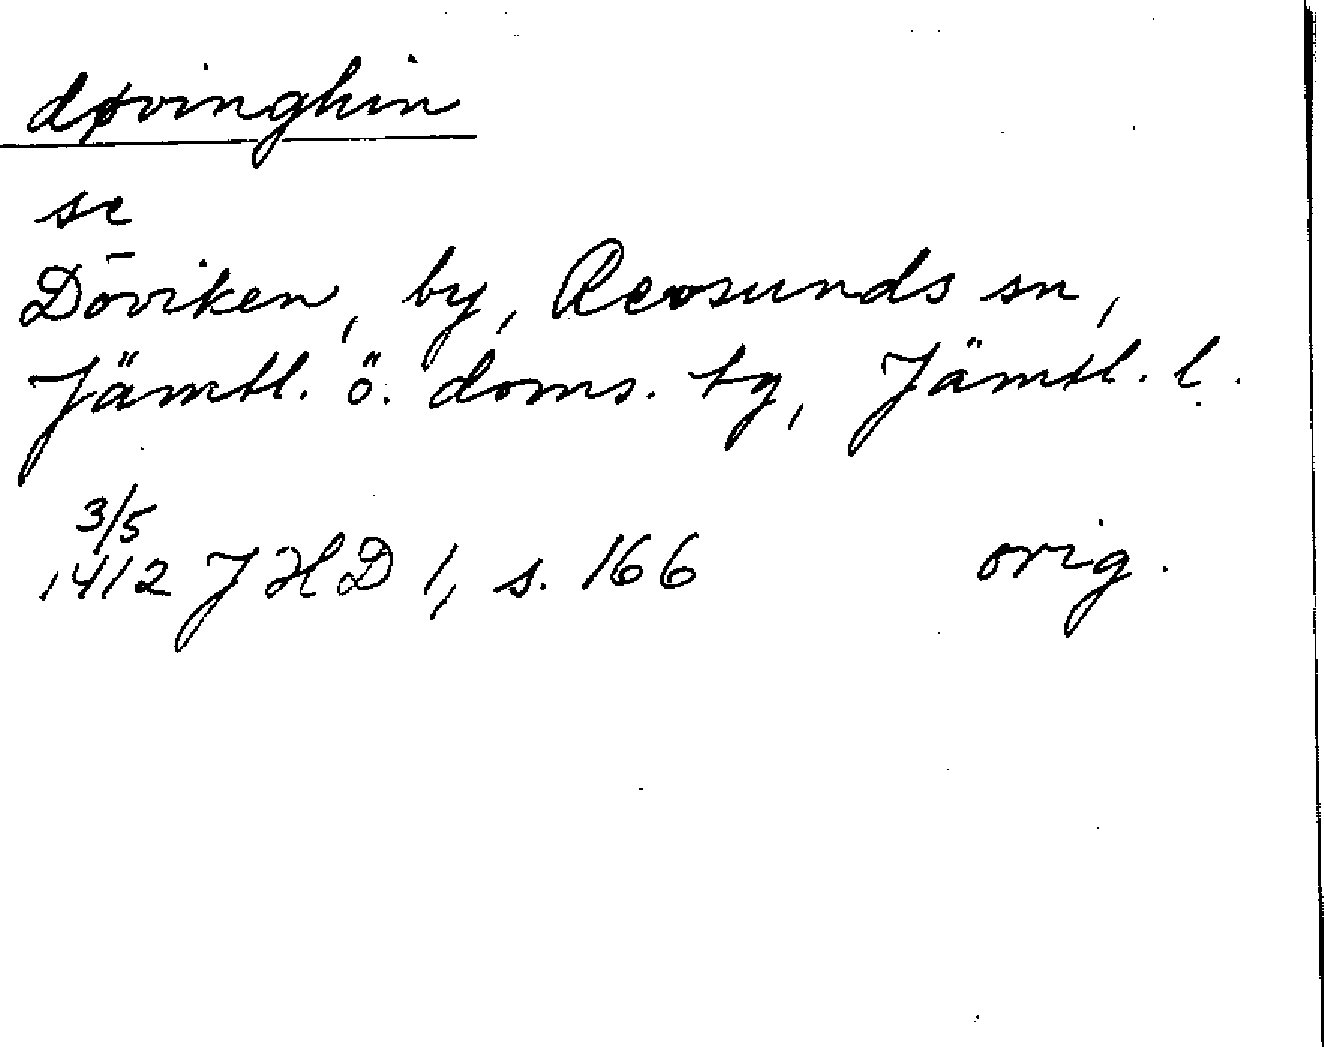 døvinghin
se
Döviken, by, Revsunds sn,
Jämtl. ö. doms. tg, Jämtl. l.
3/5
1412 JHD 1, s. 166 orig.